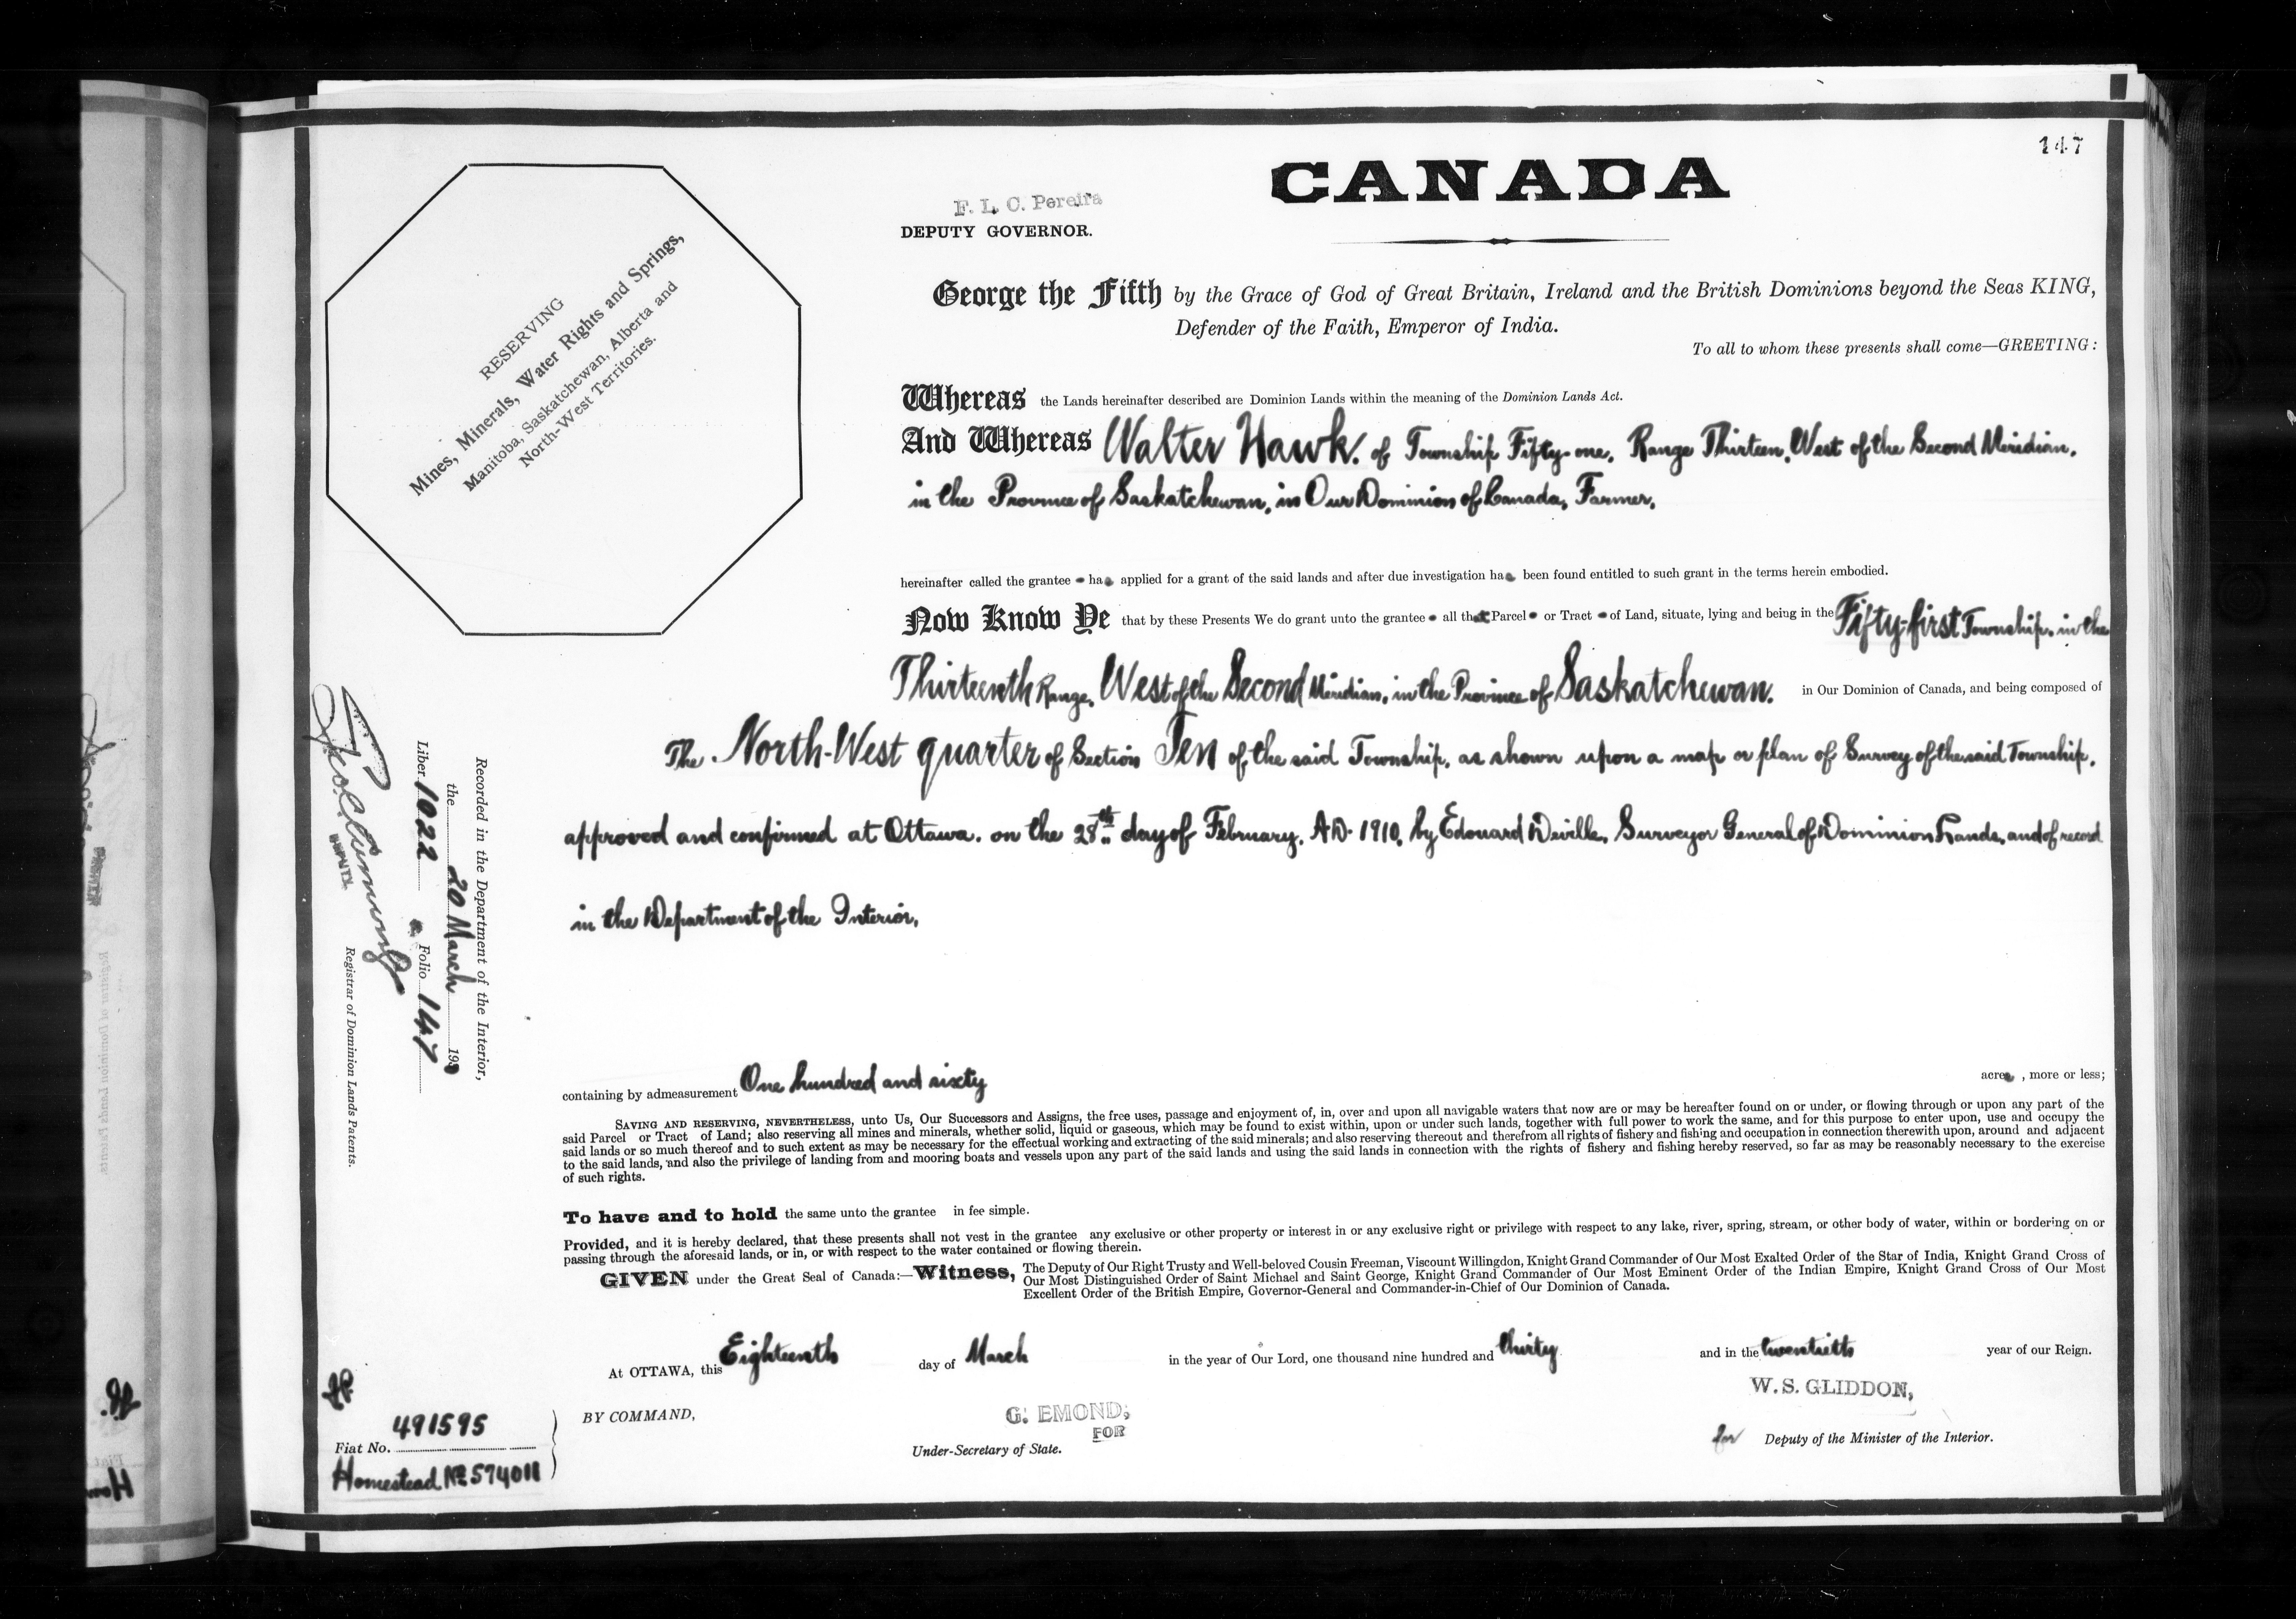 147
CANADA
F. L. C. Pereira
DEPUTY GOVERNOR.
RESERVING
Mines, Minerals, Water Rights and Springs,
Manitoba, Saskatchewan, Alberta and
North-West Territories.
George the Fifth by the Grace of God of Great Britain, Ireland and the British Dominions beyond the Seas KING,
Defender of the Faith, Emperor of India.
To all to whom these presents shall come—GREETING:
Whereas the Lands hereinafter described are Dominion Lands within the meaning of the Dominion Lands Act.
And Whereas Walter Hawk, of Township Fifty-one, Range Thirteen, West of the Second Meridian,
in the Province of Saskatchewan, in Our Dominion of Canada, Farmer,
hereinafter called the grantee has applied for a grant of the said lands and after due investigation has been found entitled to such grant in the terms herein embodied.
Now Know Ye that by these Presents We do grant unto the grantee all that Parcel or Tract of Land, situate, lying and being in the Fifty-first Township, in the
Thirteenth Range, West of the Second Meridian, in the Province of Saskatchewan. in Our Dominion of Canada, and being composed of
The North-West quarter of Section Ten of the said Township, as shown upon a map or plan of Survey of the said Township,
approved and confirmed at Ottawa, on the 28th day of February, A.D. 1910, by Edouard Deville, Surveyor General of Dominion Lands, and of record
in the Department of the Interior,
containing by admeasurement One hundred and sixty acres, more or less;
SAVING AND RESERVING, NEVERTHELESS, unto Us, Our Successors and Assigns, the free uses, passage and enjoyment of, in, over and upon all navigable waters that now are or may be hereafter found on or under, or flowing through or upon any part of the
said Parcel or Tract of Land; also reserving all mines and minerals, whether solid, liquid or gaseous, which may be found to exist within, upon or under such lands, together with full power to work the same, and for this purpose to enter upon, use and occupy the
said lands or so much thereof and to such extent as may be necessary for the effectual working and extracting of the said minerals; and also reserving thereout and therefrom all rights of fishery and fishing and occupation in connection therewith upon, around and adjacent
to the said lands, and also the privilege of landing from and mooring boats and vessels upon any part of the said lands and using the said lands in connection with the rights of fishery and fishing hereby reserved, so far as may be reasonably necessary to the exercise
of such rights.
To have and to hold the same unto the grantee in fee simple.
Provided, and it is hereby declared, that these presents shall not vest in the grantee any exclusive or other property or interest in or any exclusive right or privilege with respect to any lake, river, spring, stream, or other body of water, within or bordering on or
passing through the aforesaid lands, or in, or with respect to the water contained or flowing therein.
GIVEN under the Great Seal of Canada:—Witness, The Deputy of Our Right Trusty and Well-beloved Cousin Freeman, Viscount Willingdon, Knight Grand Commander of Our Most Exalted Order of the Star of India, Knight Grand Cross of
Our Most Distinguished Order of Saint Michael and Saint George, Knight Grand Commander of Our Most Eminent Order of the Indian Empire, Knight Grand Cross of Our Most
Excellent Order of the British Empire, Governor-General and Commander-in-Chief of Our Dominion of Canada.
At OTTAWA, this Eighteenth day of March in the year of Our Lord, one thousand nine hundred and thirty and in the twentieth year of our Reign.
BY COMMAND,
G. EMOND,
FOR
Under-Secretary of State.
W. S. GLIDDON,
for Deputy of the Minister of the Interior.
Recorded in the Department of the Interior,
the 20 March 1930
Liber 1022 Folio 147
DEPUTY
Registrar of Dominion Lands Patents.
Fiat No. 491595
Homestead No. 574011